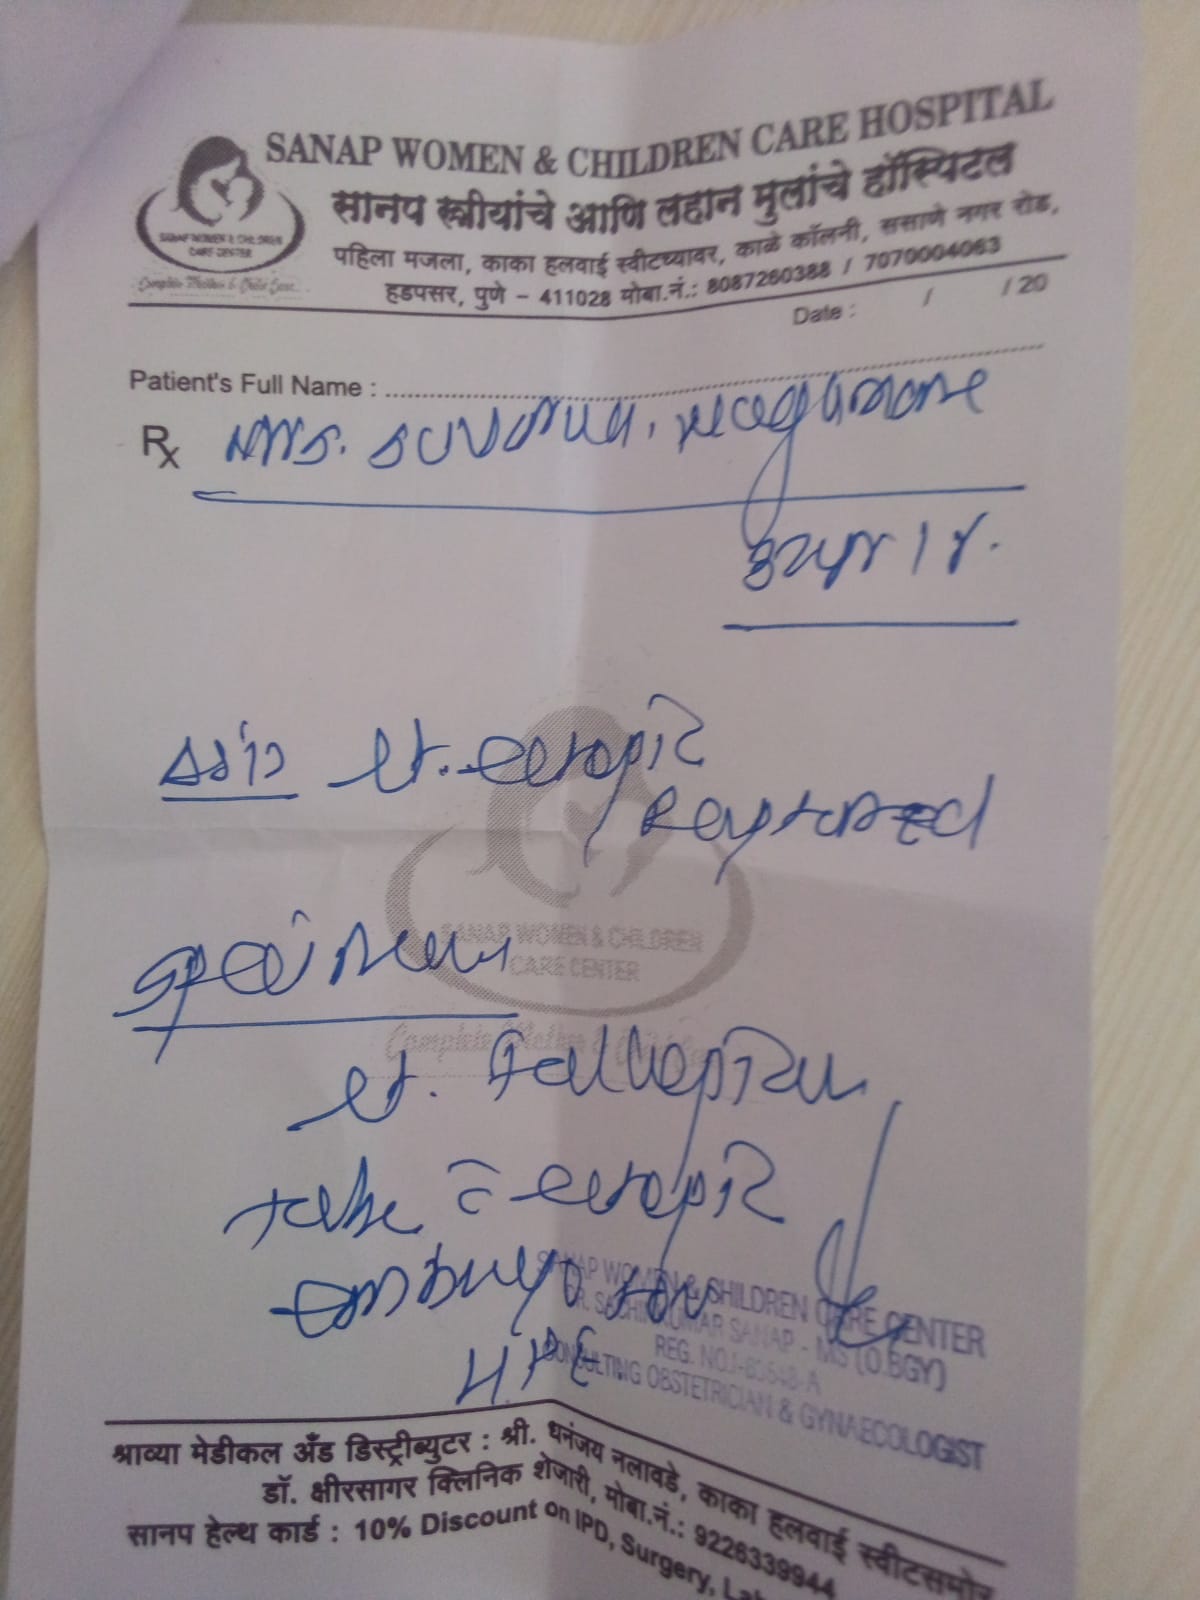 SANAP WOMEN & CHILDREN CARE HOSPITAL
सानप स्त्रीयांचे आणि लहान मुलांचे हॉस्पिटल
पहिला मजला, काका हलवाई स्वीटच्यावर, काळे कॉलनी, ससाणे नगर रोड,
हडपसर, पुणे - 411028 मोबा.नं.: 8087260388 / 7070004063
SANAP WOMEN & CHILDREN
CARE CENTER
Complete Mother & Child Care
Date : / / 20
Patient's Full Name :
Rx Mrs. Suvarna.
32yr / F.
Lt. ectopic
Ruptured
SANAP WOMEN & CHILDREN
CARE CENTER
Specimen
Lt. Fallopian
tube c̄ ectopic
embryo for
H.P.E
SANAP WOMEN & CHILDREN CARE CENTER
DR. SACHINKUMAR SANAP - MS (O.BGY)
REG. NO.
CONSULTING OBSTETRICIAN & GYNAECOLOGIST
श्राव्या मेडीकल अँड डिस्ट्रीब्युटर : श्री. धनंजय नलावडे, काका हलवाई स्वीटसमोर
डॉ. क्षीरसागर क्लिनिक शेजारी, मोबा.नं.: 9226339944
सानप हेल्थ कार्ड : 10% Discount on IPD, Surgery,